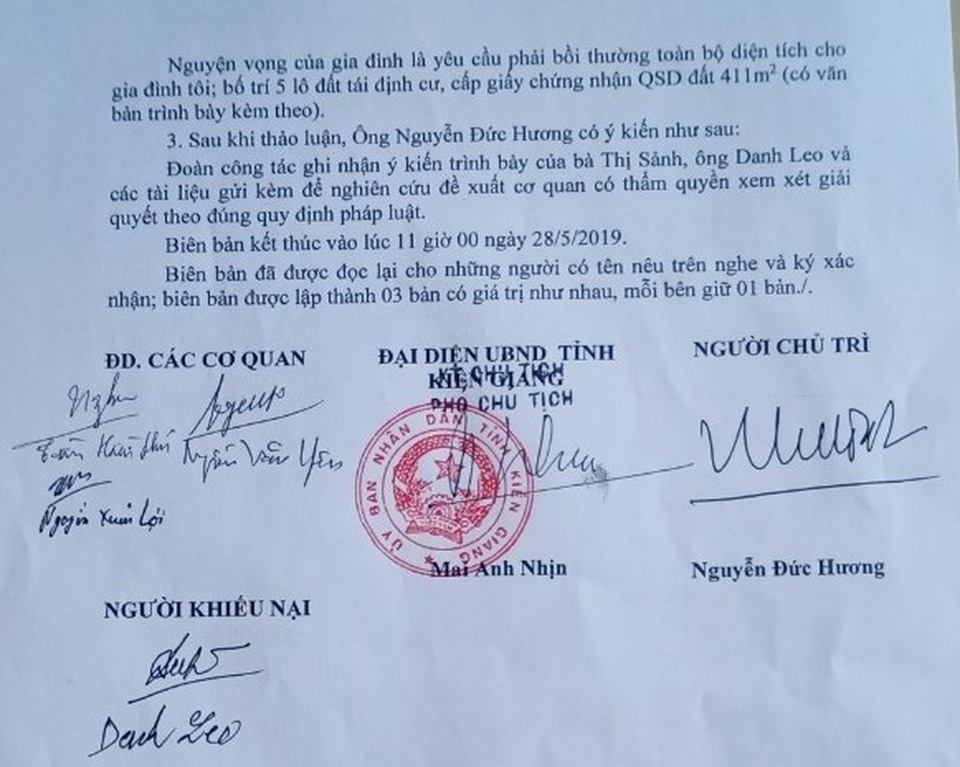 Nguyện vọng của gia đình là yêu cầu phải bồi thường toàn bộ diện tích cho
gia đình tôi; bố trí 5 lô đất tái định cư, cấp giấy chứng nhận QSD đất 411m² (có văn
bản trình bày kèm theo).
3. Sau khi thảo luận, Ông Nguyễn Đức Hương có ý kiến như sau:
Đoàn công tác ghi nhận ý kiến trình bày của bà Thị Sảnh, ông Danh Leo và
các tài liệu gửi kèm để nghiên cứu đề xuất cơ quan có thẩm quyền xem xét giải
quyết theo đúng quy định pháp luật.
Biên bản kết thúc vào lúc 11 giờ 00 ngày 28/5/2019.
Biên bản đã được đọc lại cho những người có tên nêu trên nghe và ký xác
nhận; biên bản được lập thành 03 bản có giá trị như nhau, mỗi bên giữ 01 bản./.
ĐD. CÁC CƠ QUAN
ĐẠI DIỆN UBND TỈNH
KIÊN GIANG
KT. CHỦ TỊCH
PHÓ CHỦ TỊCH
ỦY BAN NHÂN DÂN TỈNH KIÊN GIANG
Mai Anh Nhịn
NGƯỜI CHỦ TRÌ
Nguyễn Đức Hương
Nguyễn Xuân Lợi
NGƯỜI KHIẾU NẠI
Danh Leo